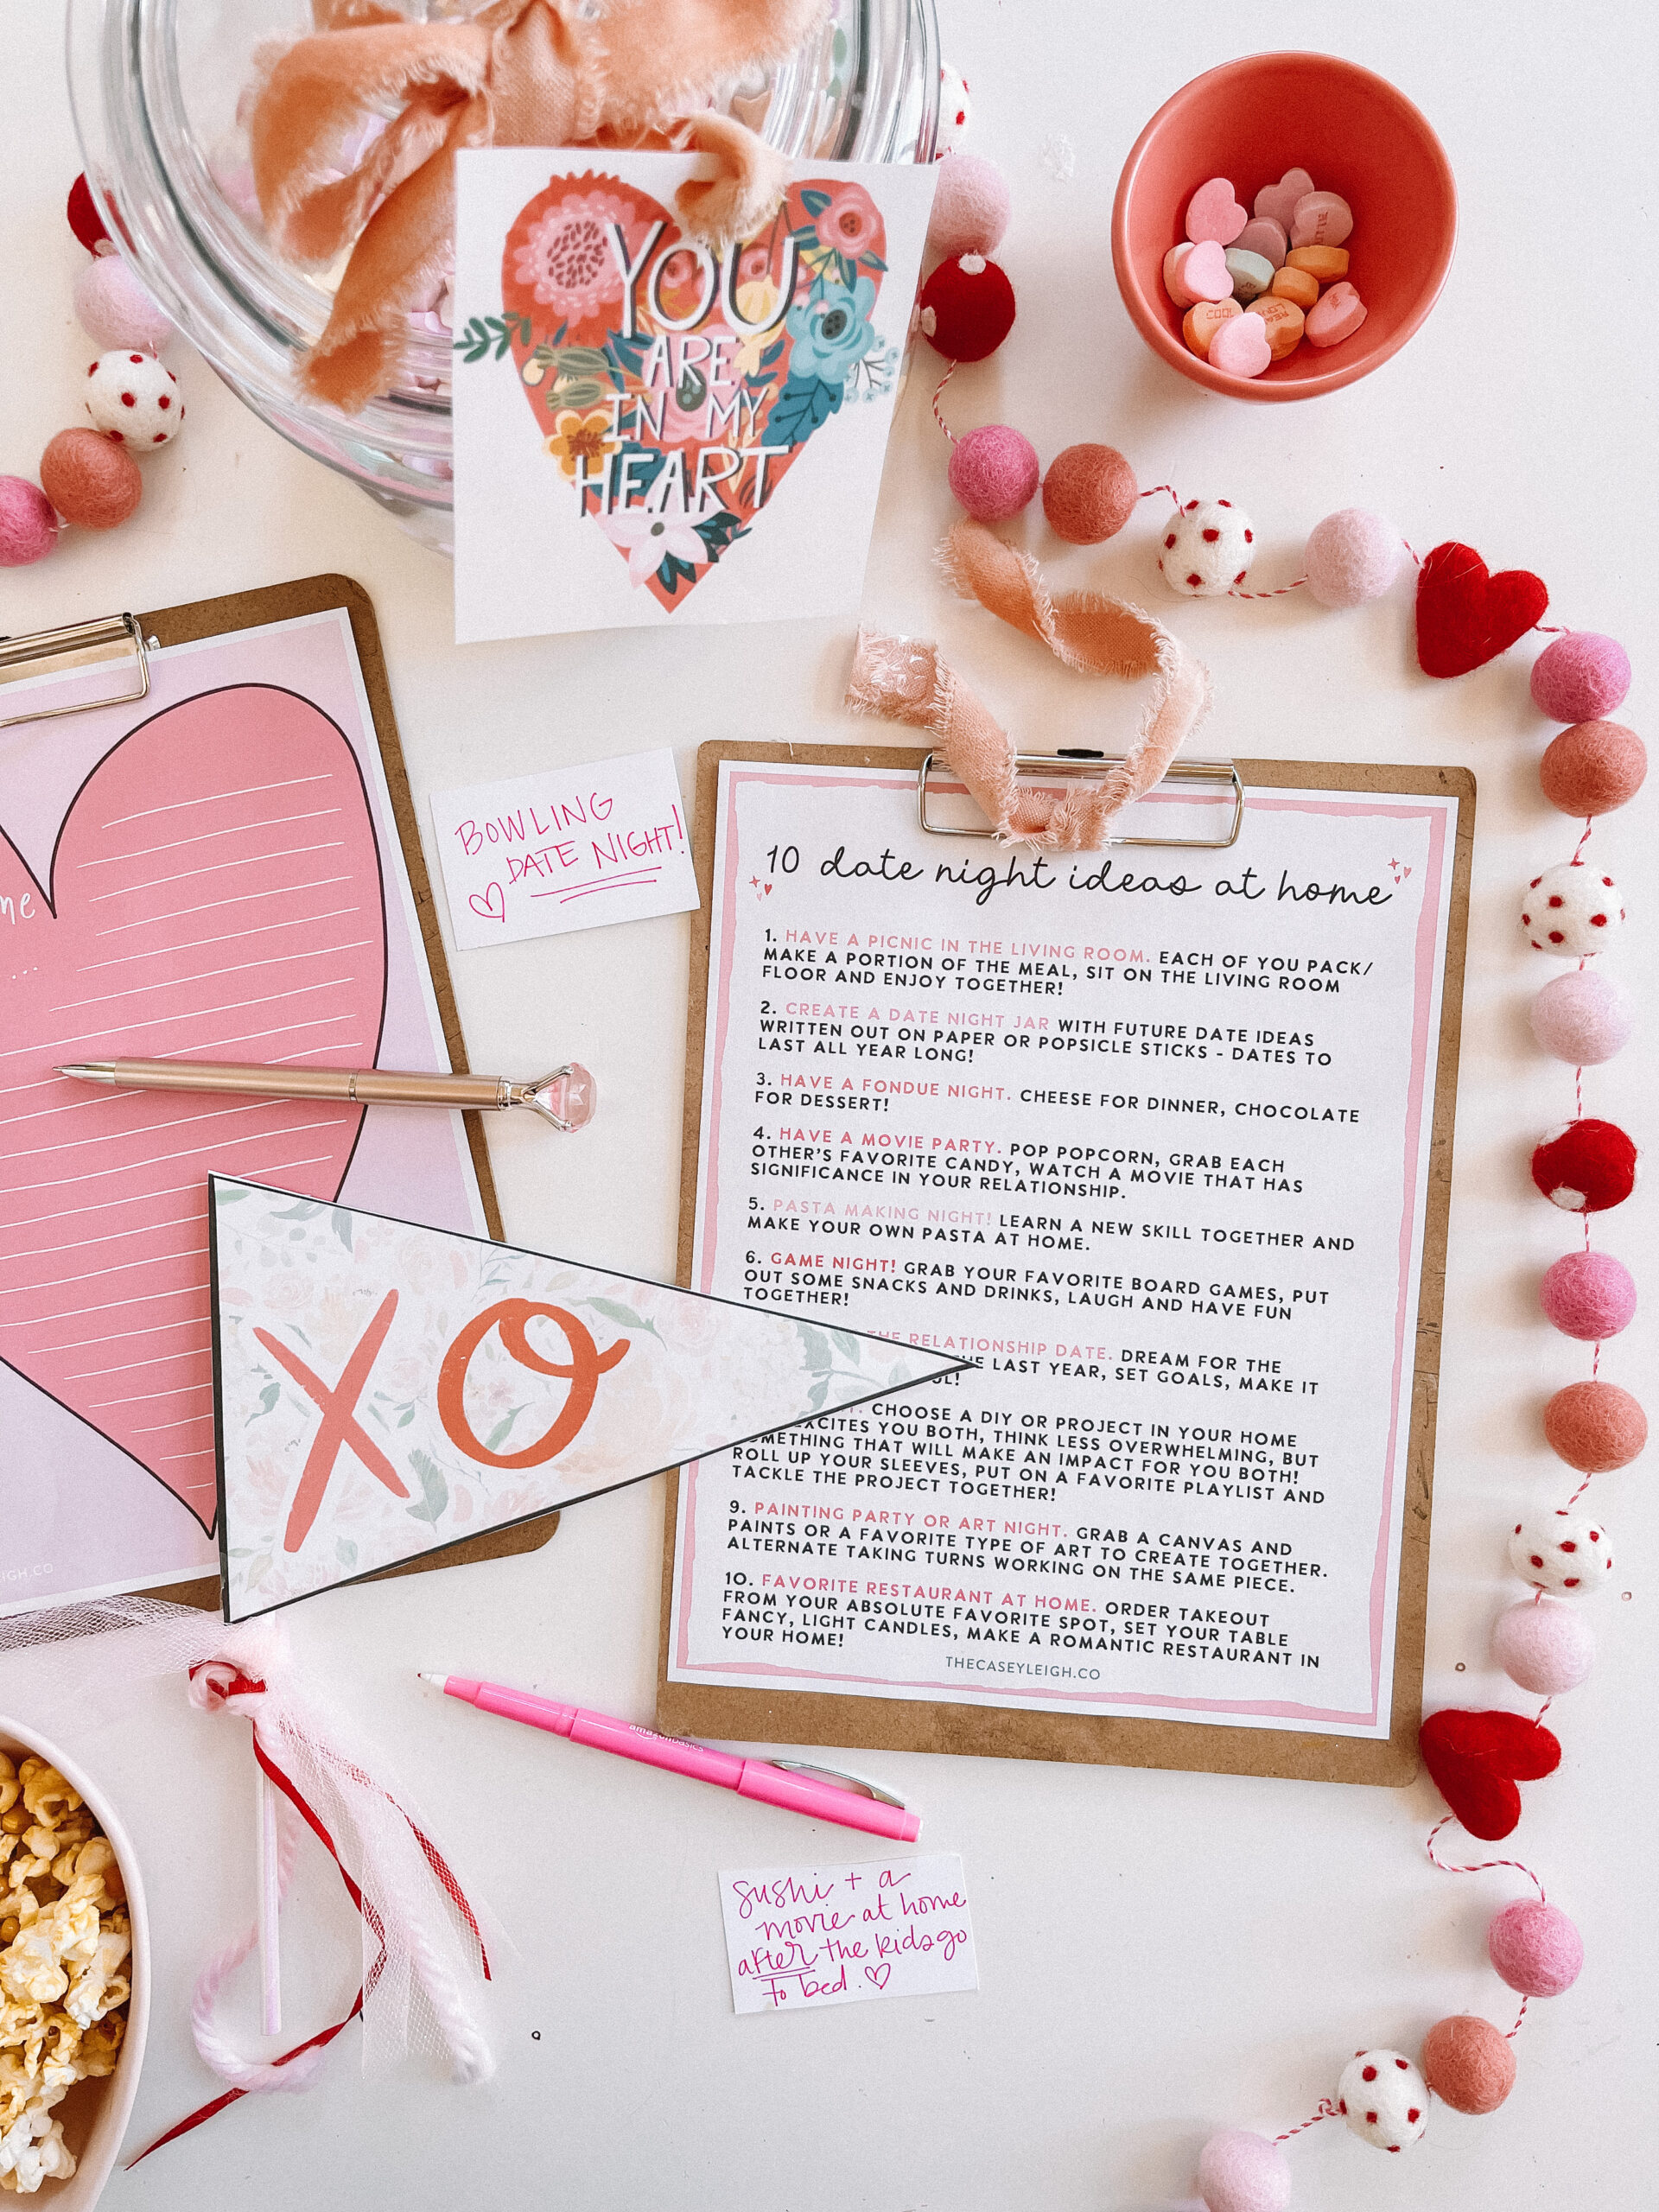 YOU
ARE
IN MY
HEART
BOWLING
DATE NIGHT!
10 date night ideas at home
1. HAVE A PICNIC IN THE LIVING ROOM. EACH OF YOU PACK/
MAKE A PORTION OF THE MEAL, SIT ON THE LIVING ROOM
FLOOR AND ENJOY TOGETHER!
2. CREATE A DATE NIGHT JAR WITH FUTURE DATE IDEAS
WRITTEN OUT ON PAPER OR POPSICLE STICKS - DATES TO
LAST ALL YEAR LONG!
3. HAVE A FONDUE NIGHT. CHEESE FOR DINNER, CHOCOLATE
FOR DESSERT!
4. HAVE A MOVIE PARTY. POP POPCORN, GRAB EACH
OTHER'S FAVORITE CANDY, WATCH A MOVIE THAT HAS
SIGNIFICANCE IN YOUR RELATIONSHIP.
5. PASTA MAKING NIGHT! LEARN A NEW SKILL TOGETHER AND
MAKE YOUR OWN PASTA AT HOME.
6. GAME NIGHT! GRAB YOUR FAVORITE BOARD GAMES, PUT
OUT SOME SNACKS AND DRINKS, LAUGH AND HAVE FUN
TOGETHER!
THE RELATIONSHIP DATE. DREAM FOR THE
LAST YEAR, SET GOALS, MAKE IT
CHOOSE A DIY OR PROJECT IN YOUR HOME
EXCITES YOU BOTH, THINK LESS OVERWHELMING, BUT
SOMETHING THAT WILL MAKE AN IMPACT FOR YOU BOTH!
ROLL UP YOUR SLEEVES, PUT ON A FAVORITE PLAYLIST AND
TACKLE THE PROJECT TOGETHER!
9. PAINTING PARTY OR ART NIGHT. GRAB A CANVAS AND
PAINTS OR A FAVORITE TYPE OF ART TO CREATE TOGETHER.
ALTERNATE TAKING TURNS WORKING ON THE SAME PIECE.
10. FAVORITE RESTAURANT AT HOME. ORDER TAKEOUT
FROM YOUR ABSOLUTE FAVORITE SPOT, SET YOUR TABLE
FANCY, LIGHT CANDLES, MAKE A ROMANTIC RESTAURANT IN
YOUR HOME!
THECASEYLEIGH.CO
XO
amazonbasics
sushi + a
movie at home
after the kids go
to bed.